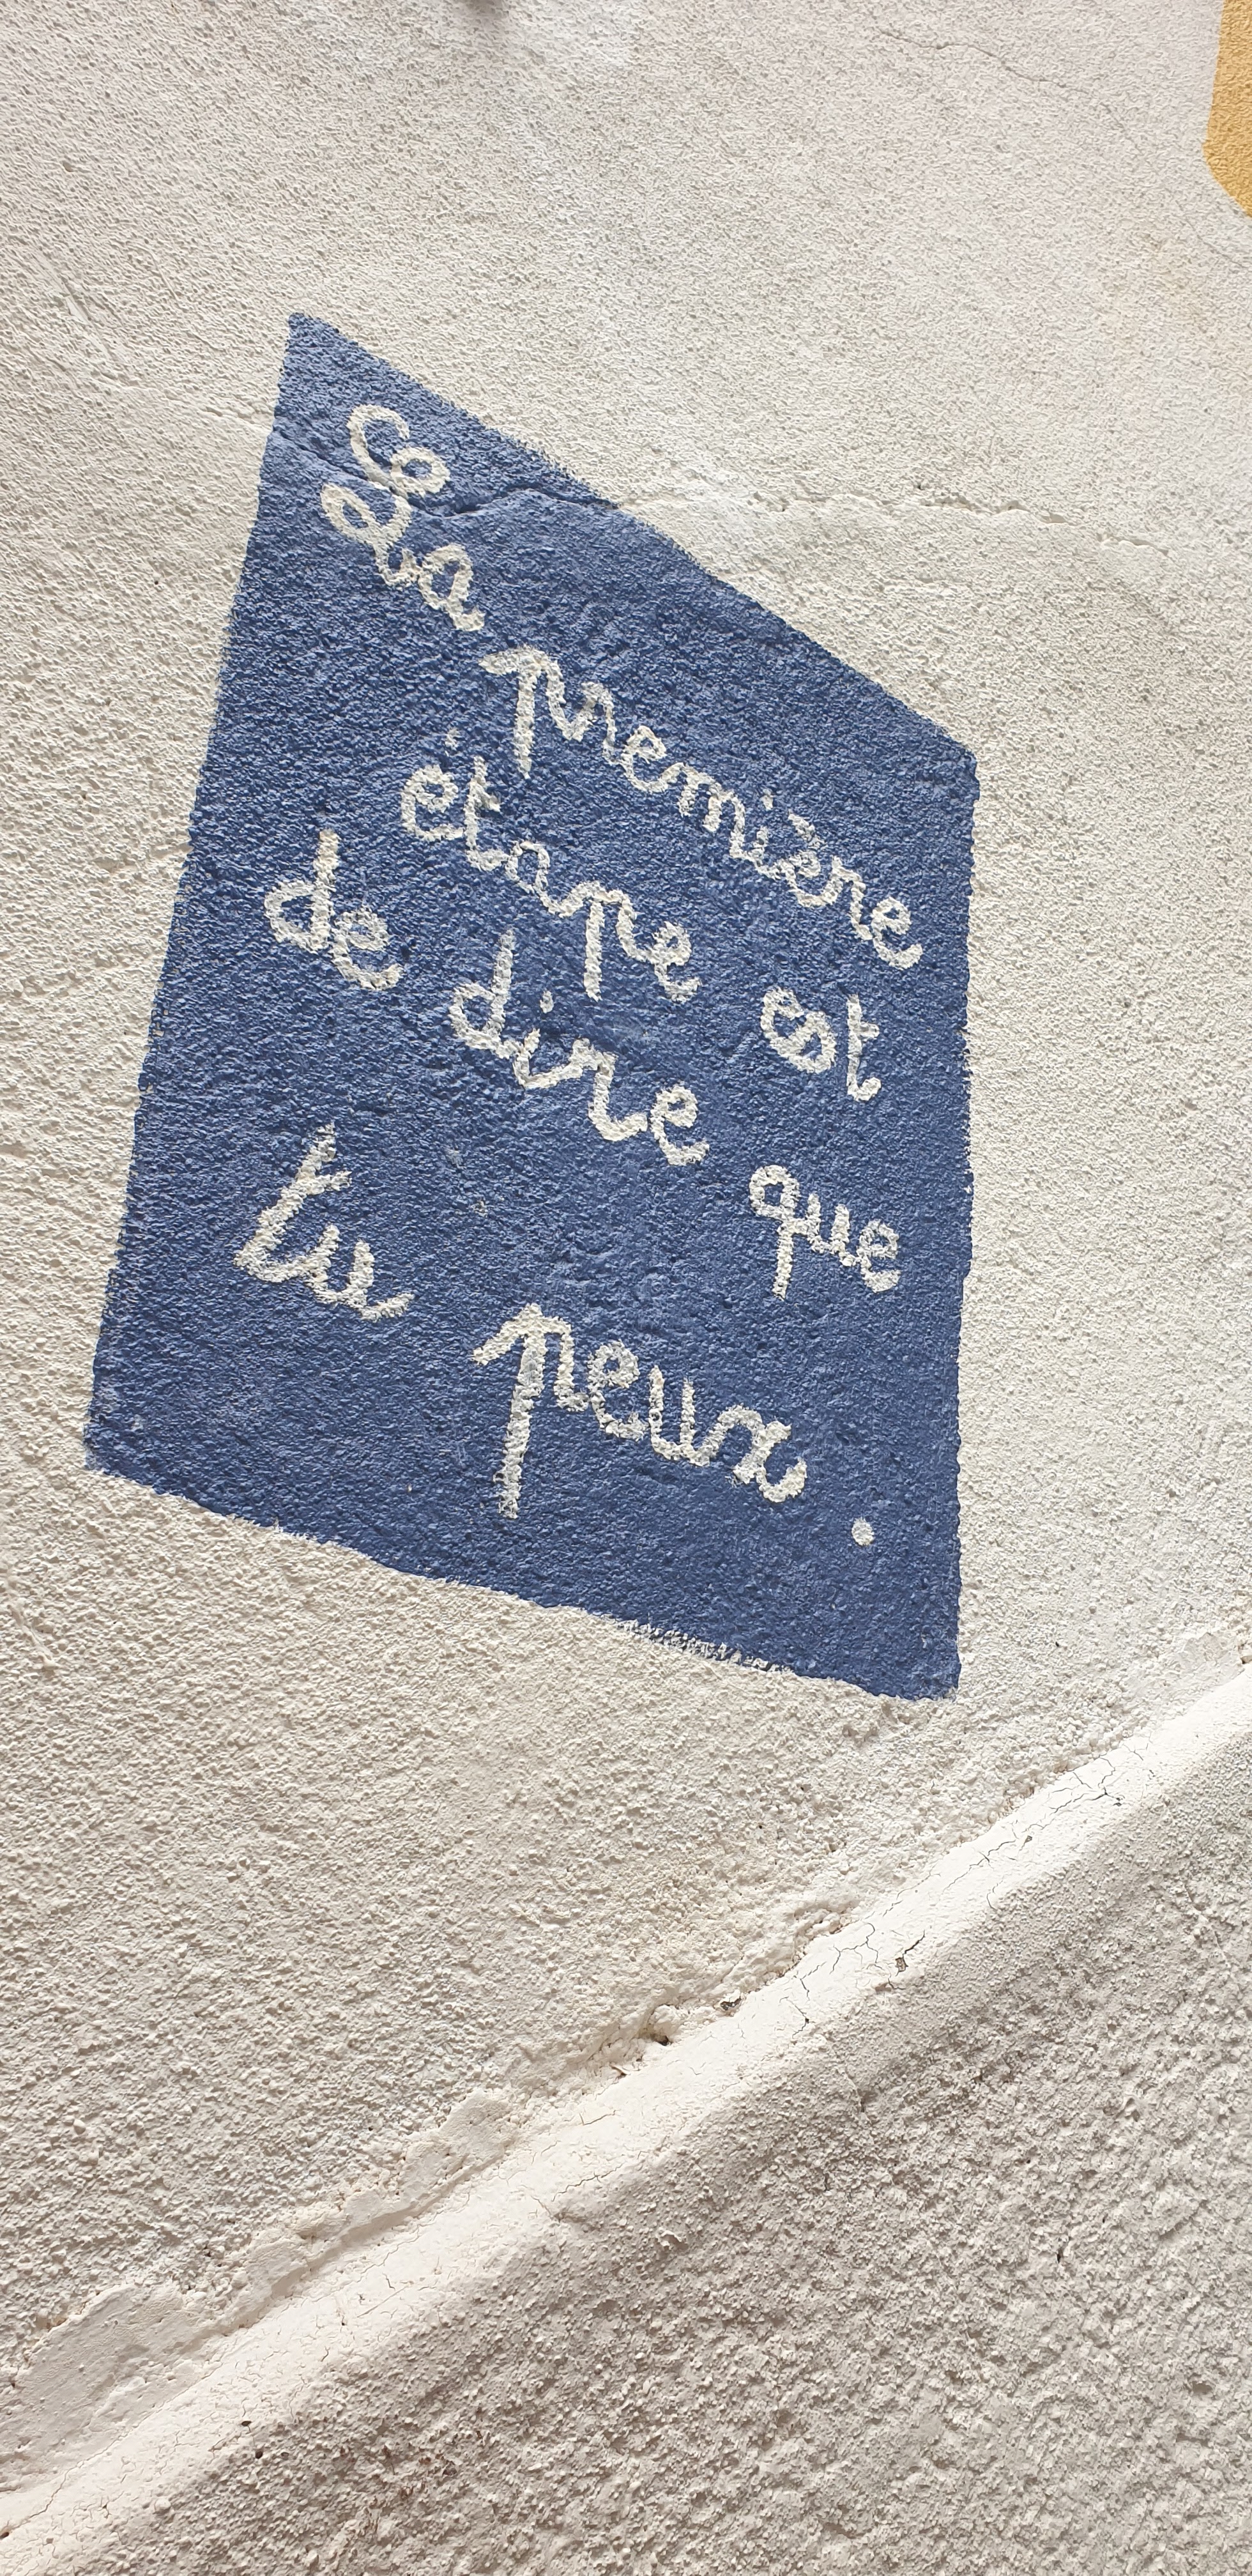 La première
étape est
de dire que
tu peux.